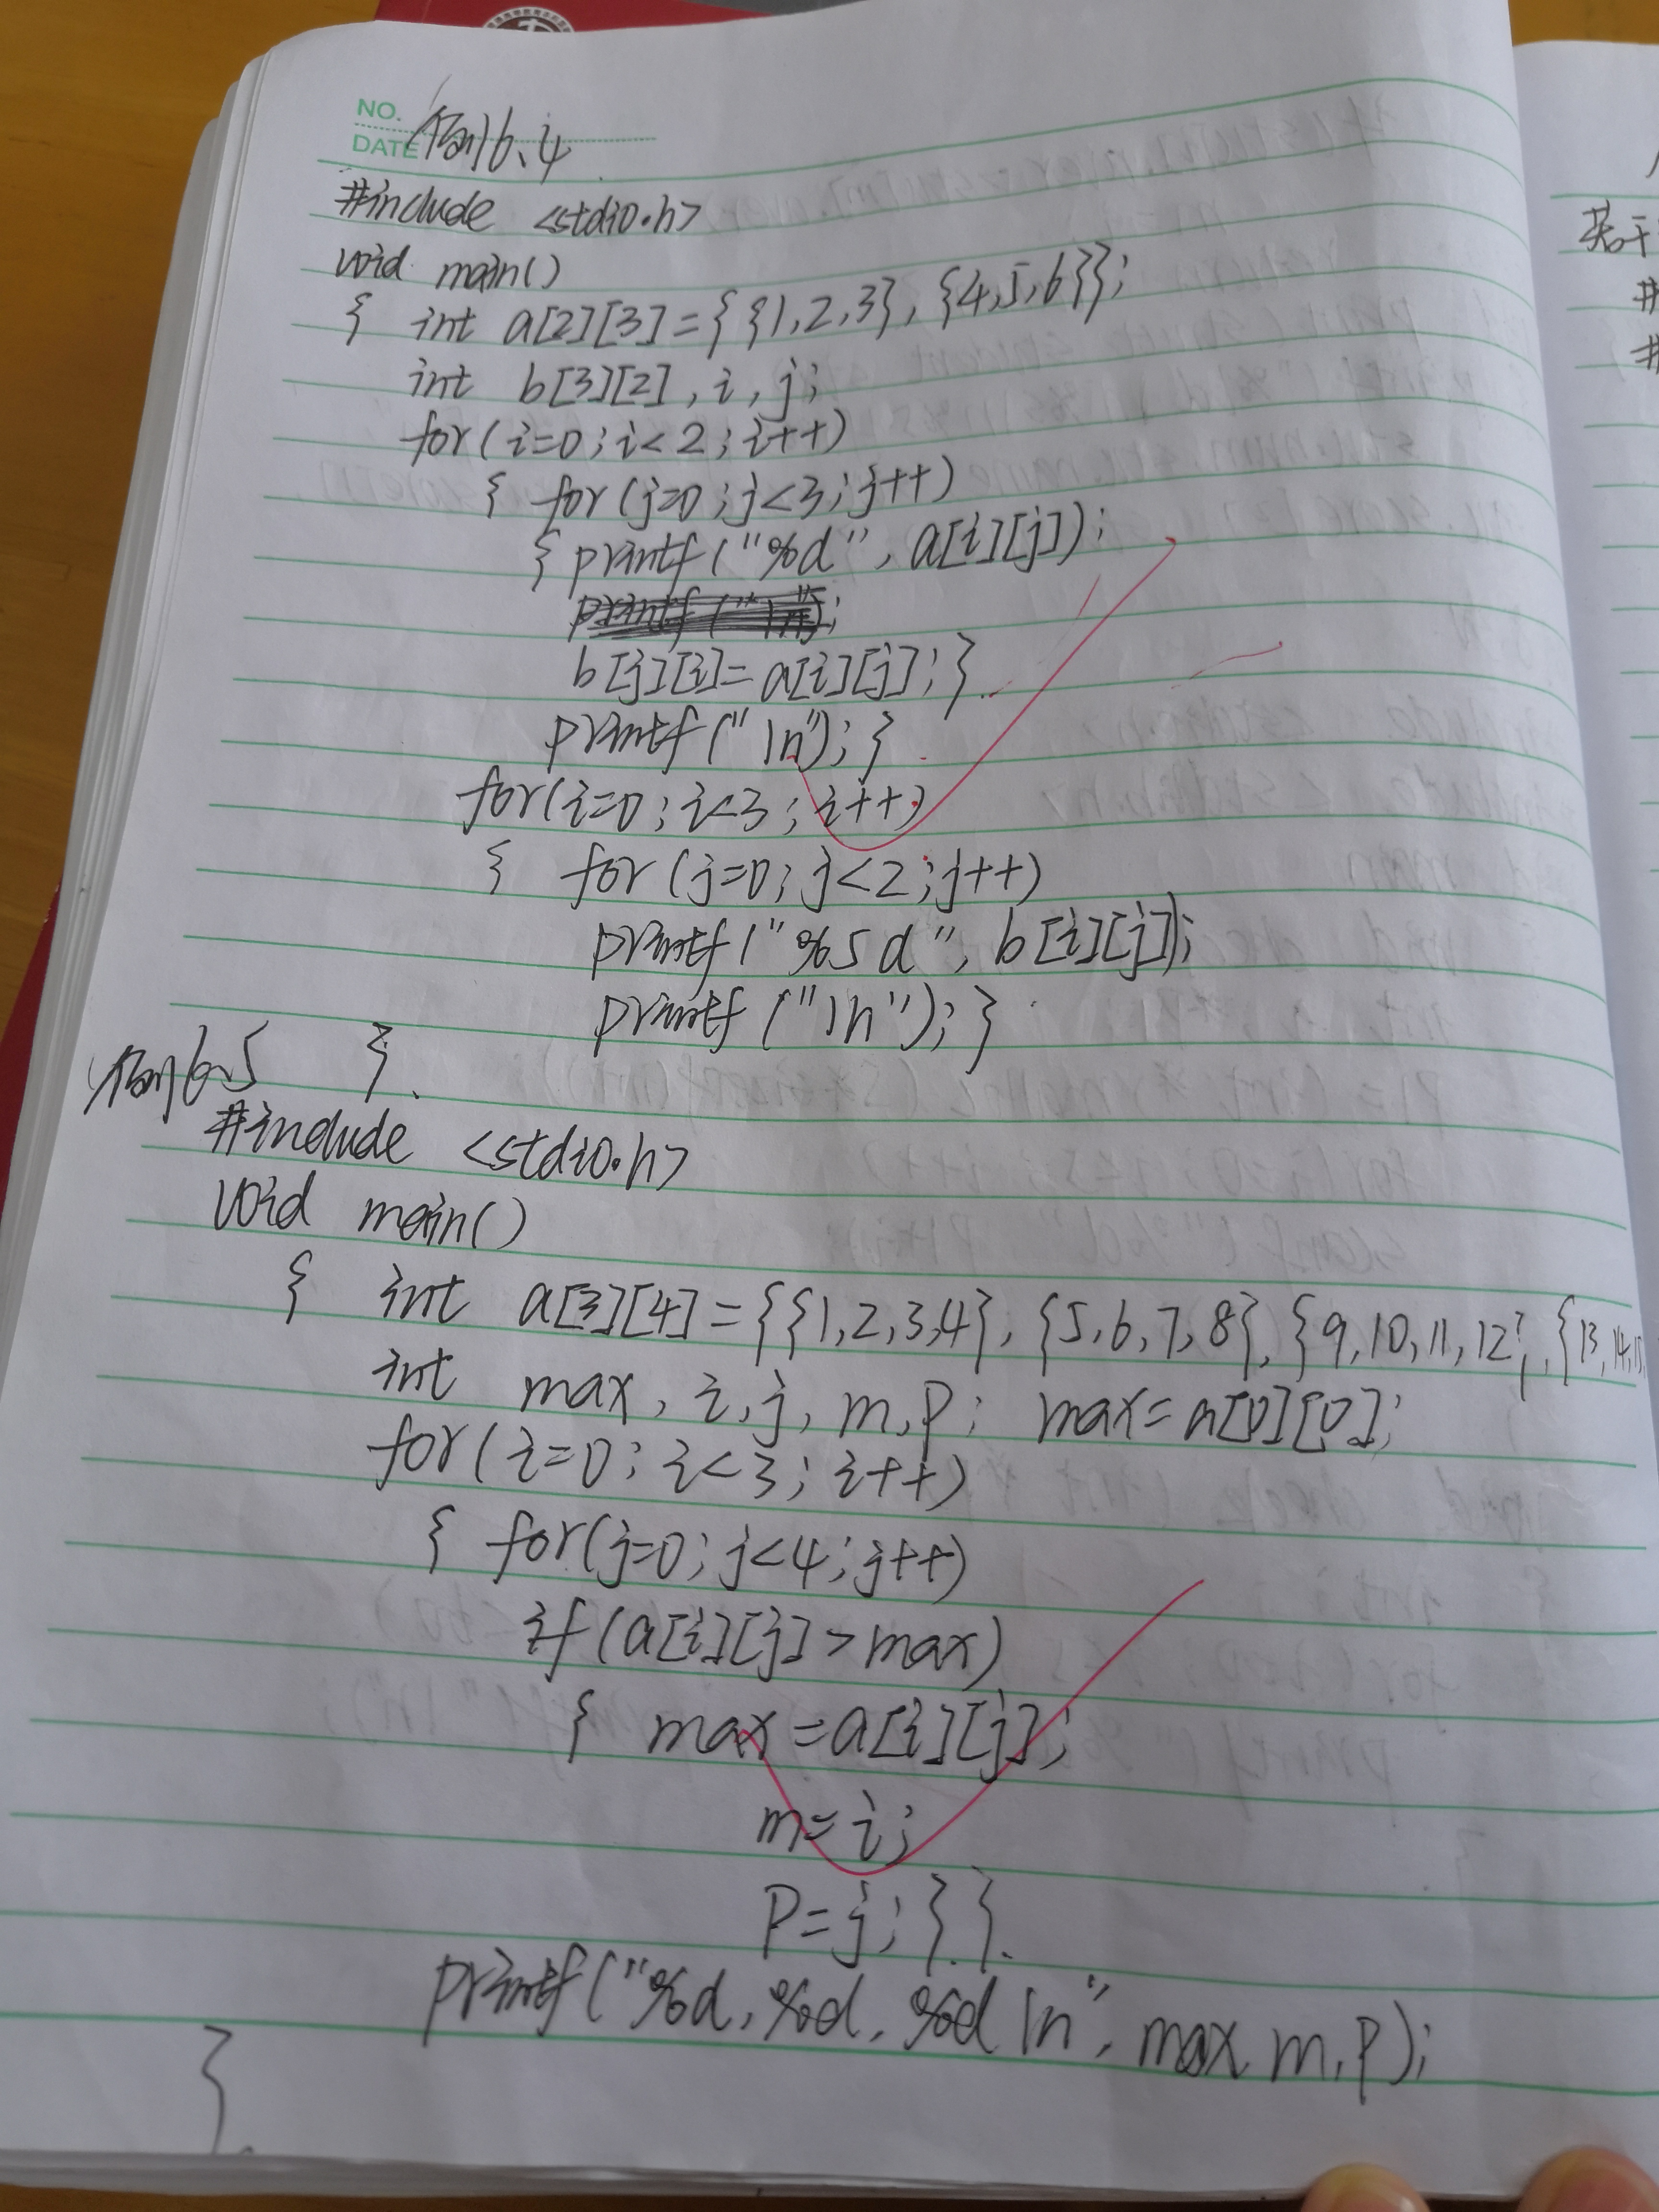 NO.
DATE
例6.4
#include <stdio.h>
void main()
{ int a[2][3]={{1,2,3},{4,5,6}};
int b[3][2],i,j;
for(i=0;i<2;i++)
{ for(j=0;j<3;j++)
{ printf("%d",a[i][j]);
b[j][i]=a[i][j];}
printf("\n");}
for(i=0;i<3;i++)
{ for(j=0;j<2;j++)
printf("%5d",b[i][j]);
printf("\n");}
}
例6.5
#include <stdio.h>
void main()
{ int a[3][4]={{1,2,3,4},{5,6,7,8},{9,10,11,12},{13,14,15,
int max,i,j,m,p; max=a[0][0];
for(i=0;i<3;i++)
{ for(j=0;j<4;j++)
if(a[i][j]>max)
{ max=a[i][j];
m=i;
p=j;}}
printf("%d,%d,%d\n",max,m,p);
}